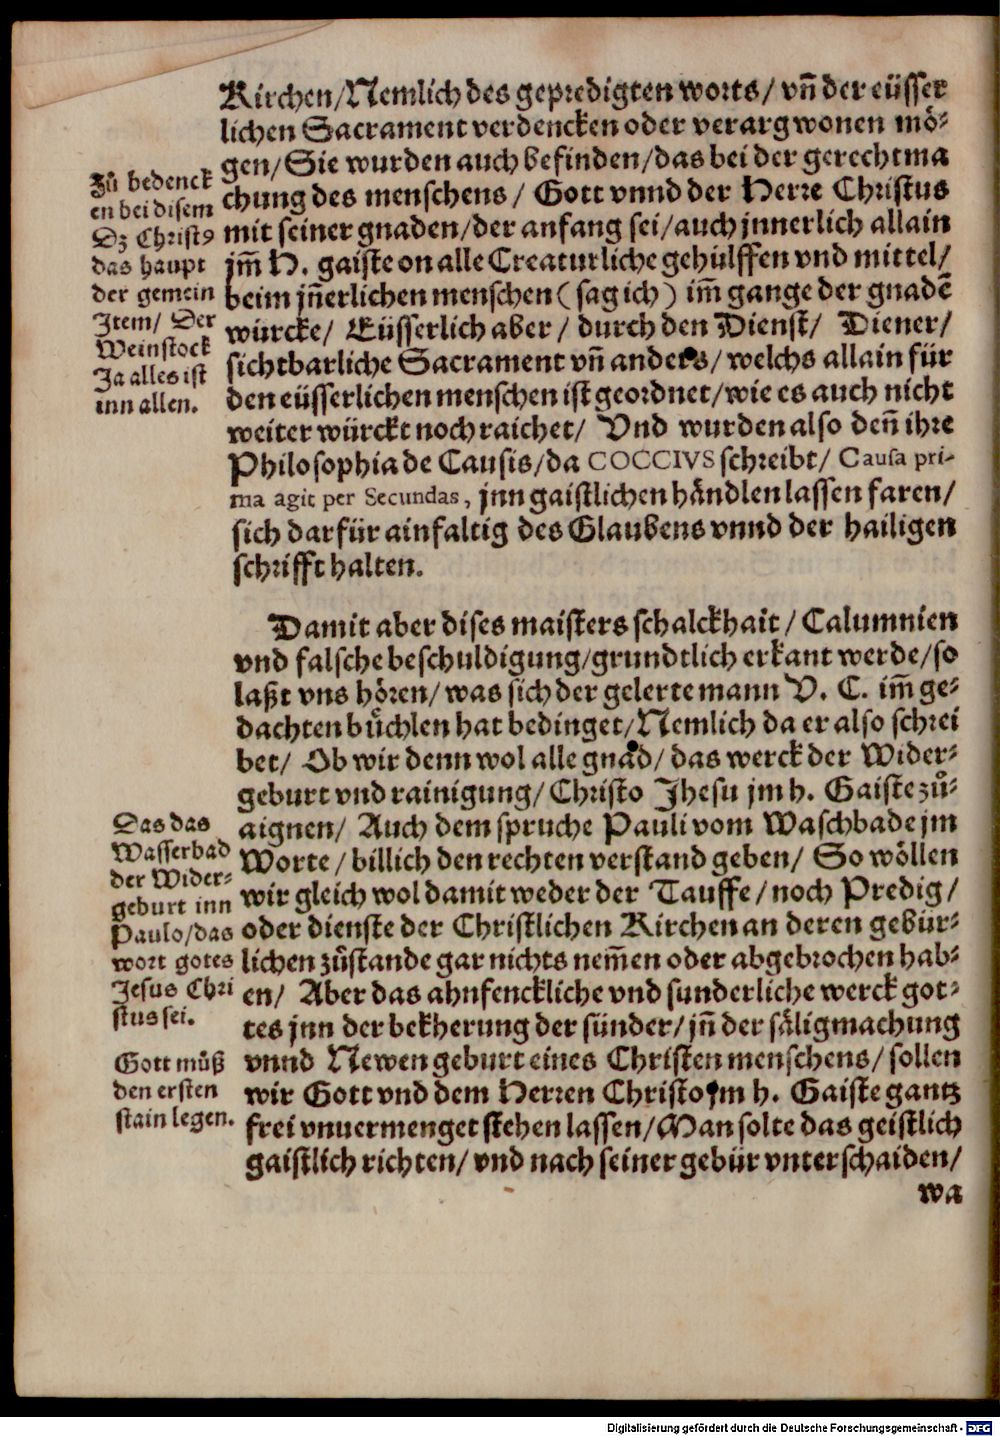 Kirchen/Nemlich des gepredigten worts/ vn̄ der eüsser
lichen Sacrament verdencken oder verargwonen mö-
gen/Sie wurden auch befinden/das bei der gerechtma
chung des menschens/ Gott vnnd der Herre Christus
mit seiner gnaden/der anfang sei/auch jnnerlich allain
jm̄ H. gaiste on alle Creaturliche gehülffen vnd mittel/
beim jn̄erlichen menschen (sag ich) im̄ gange der gnadē
würcke/ Eüsserlich aber/ durch den Dienst/ Diener/
sichtbarliche Sacrament vn̄ anders/ welchs allain für
den eüsserlichen menschen ist geordnet/wie es auch nicht
weiter würckt noch raichet/ Vnd wurden also den̄ ihre
Philosophia de Causis/da COCCIVS schreibt/ Causa pri-
ma agit per Secundas, jnn gaistlichen händlen lassen faren/
sich darfür ainfaltig des Glaubens vnnd der hailigen
schrifft halten.
Zů bedenck
en bei disem
Dz Christꝯ
das haupt
der gemein
Item/ Der
Weinstock
Ja alles ist
inn allen.
Damit aber dises maisters schalckhait/ Calumnien
vnd falsche beschuldigung/grundtlich erkant werde/so
laßt vns hören/was sich der gelerte mann V. C. im̄ ge-
dachten bůchlen hat bedinget/Nemlich da er also schrei
bet/ Ob wir denn wol alle gnad/ das werck der Wider-
geburt vnd rainigung/ Christo Jhesu jm h. Gaiste zů-
aignen/ Auch dem spruche Pauli vom Waschbade jm
Worte/ billich den rechten verstand geben/ So wöllen
wir gleich wol damit weder der Tauffe/ noch Predig/
oder dienste der Christlichen Kirchen an deren gebür-
lichen zůstande gar nichts nem̄en oder abgebrochen hab-
en/ Aber das ahnfenckliche vnd sunderliche werck got-
tes jnn der bekherung der sünder/jn̄ der säligmachung
vnnd Newen geburt eines Christen menschens/ sollen
wir Gott vnd dem Herren Christo jm h. Gaiste gantz
frei vnuermenget stehen lassen/Man solte das geistlich
gaistlich richten/ vnd nach seiner gebür vnterschaiden/
wa
Das das
Wasserbad
der Wider-
geburt inn
Paulo/das
wort gotes
Jesus Chri
stus sei.
Gott můß
den ersten
stain legen.
Digitalisierung gefördert durch die Deutsche Forschungsgemeinschaft - DFG